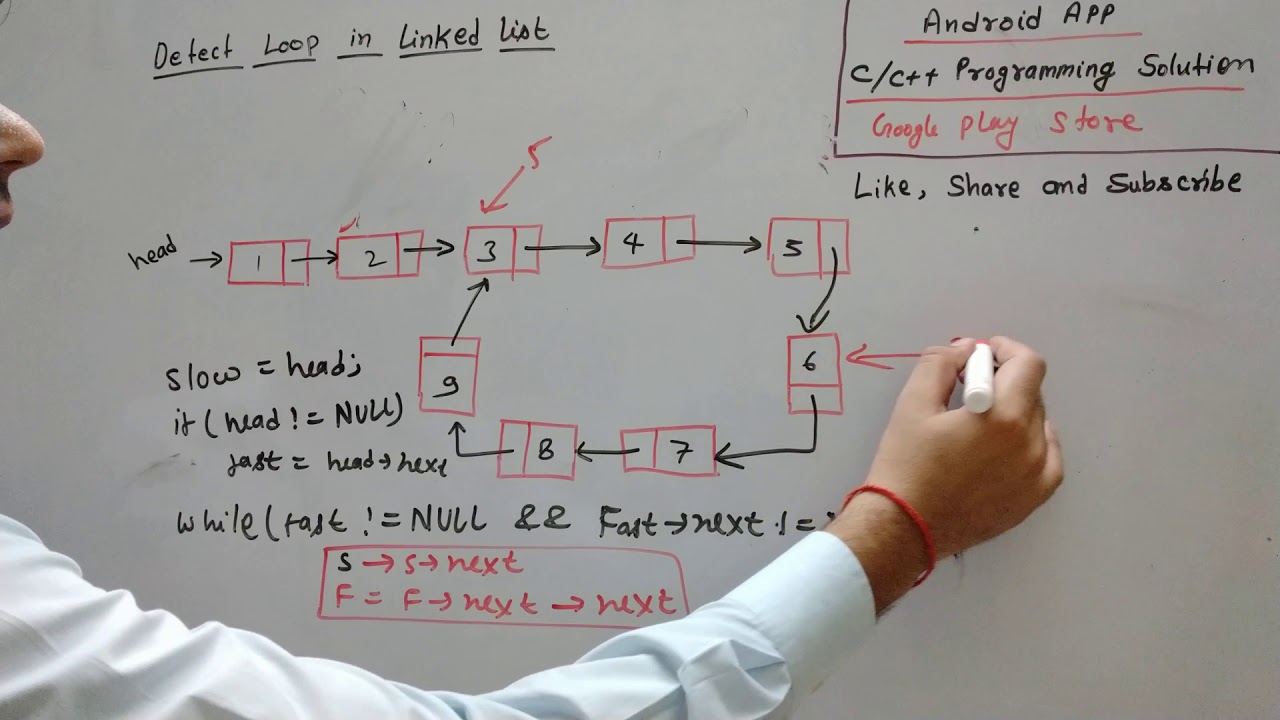 Detect Loop in Linked List
Android APP
C/C++ Programming Solution
Google play store
Like, Share and Subscribe
S
head → 1 → 2 → 3 → 4 → 5
6
7
8
9
slow = head;
if (head != NULL)
fast = head→next
while(fast != NULL && Fast→next !=
S → S→next
F = F→next→next